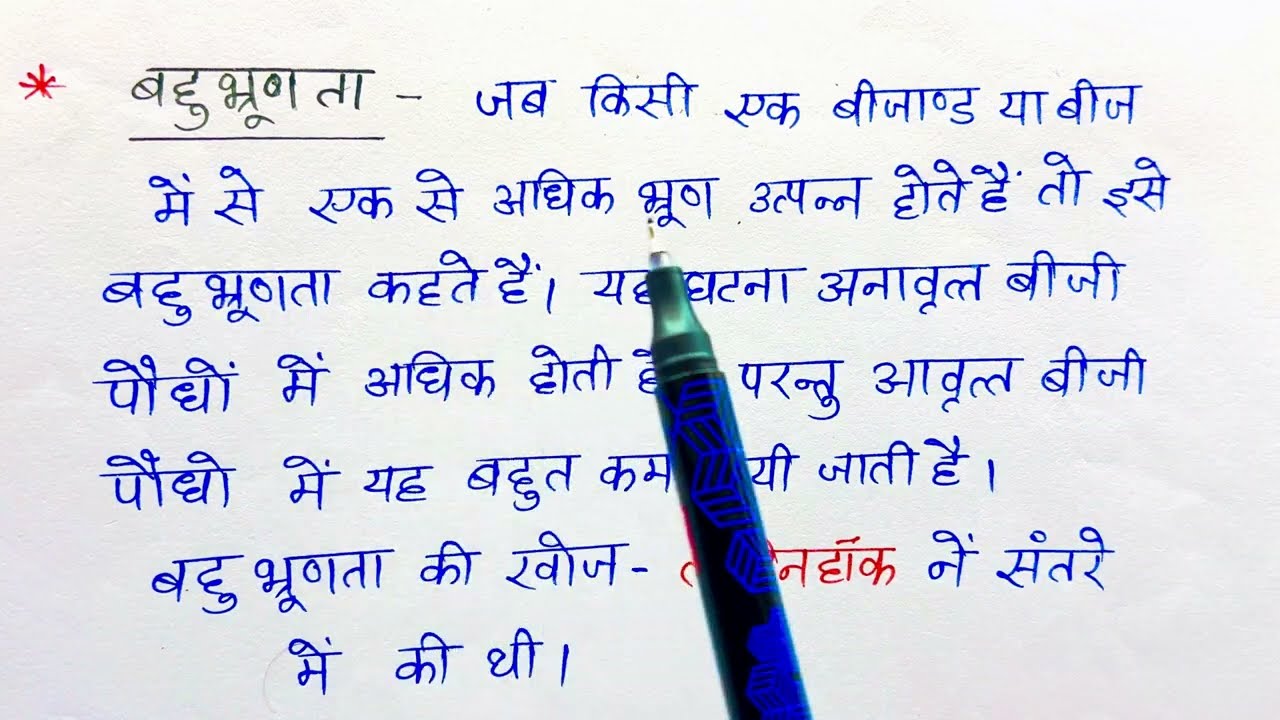 * बहुभ्रूणता - जब किसी एक बीजाण्ड या बीज
में से एक से अधिक भ्रूण उत्पन्न होते हैं तो इसे
बहुभ्रूणता कहते हैं। यह घटना अनावृत्त बीजी
पौधों में अधिक होती परन्तु आवृत्त बीजी
पौधो में यह बहुत कम जाती है।
बहुभ्रूणता की खोज - नें संतरे
में की थी।